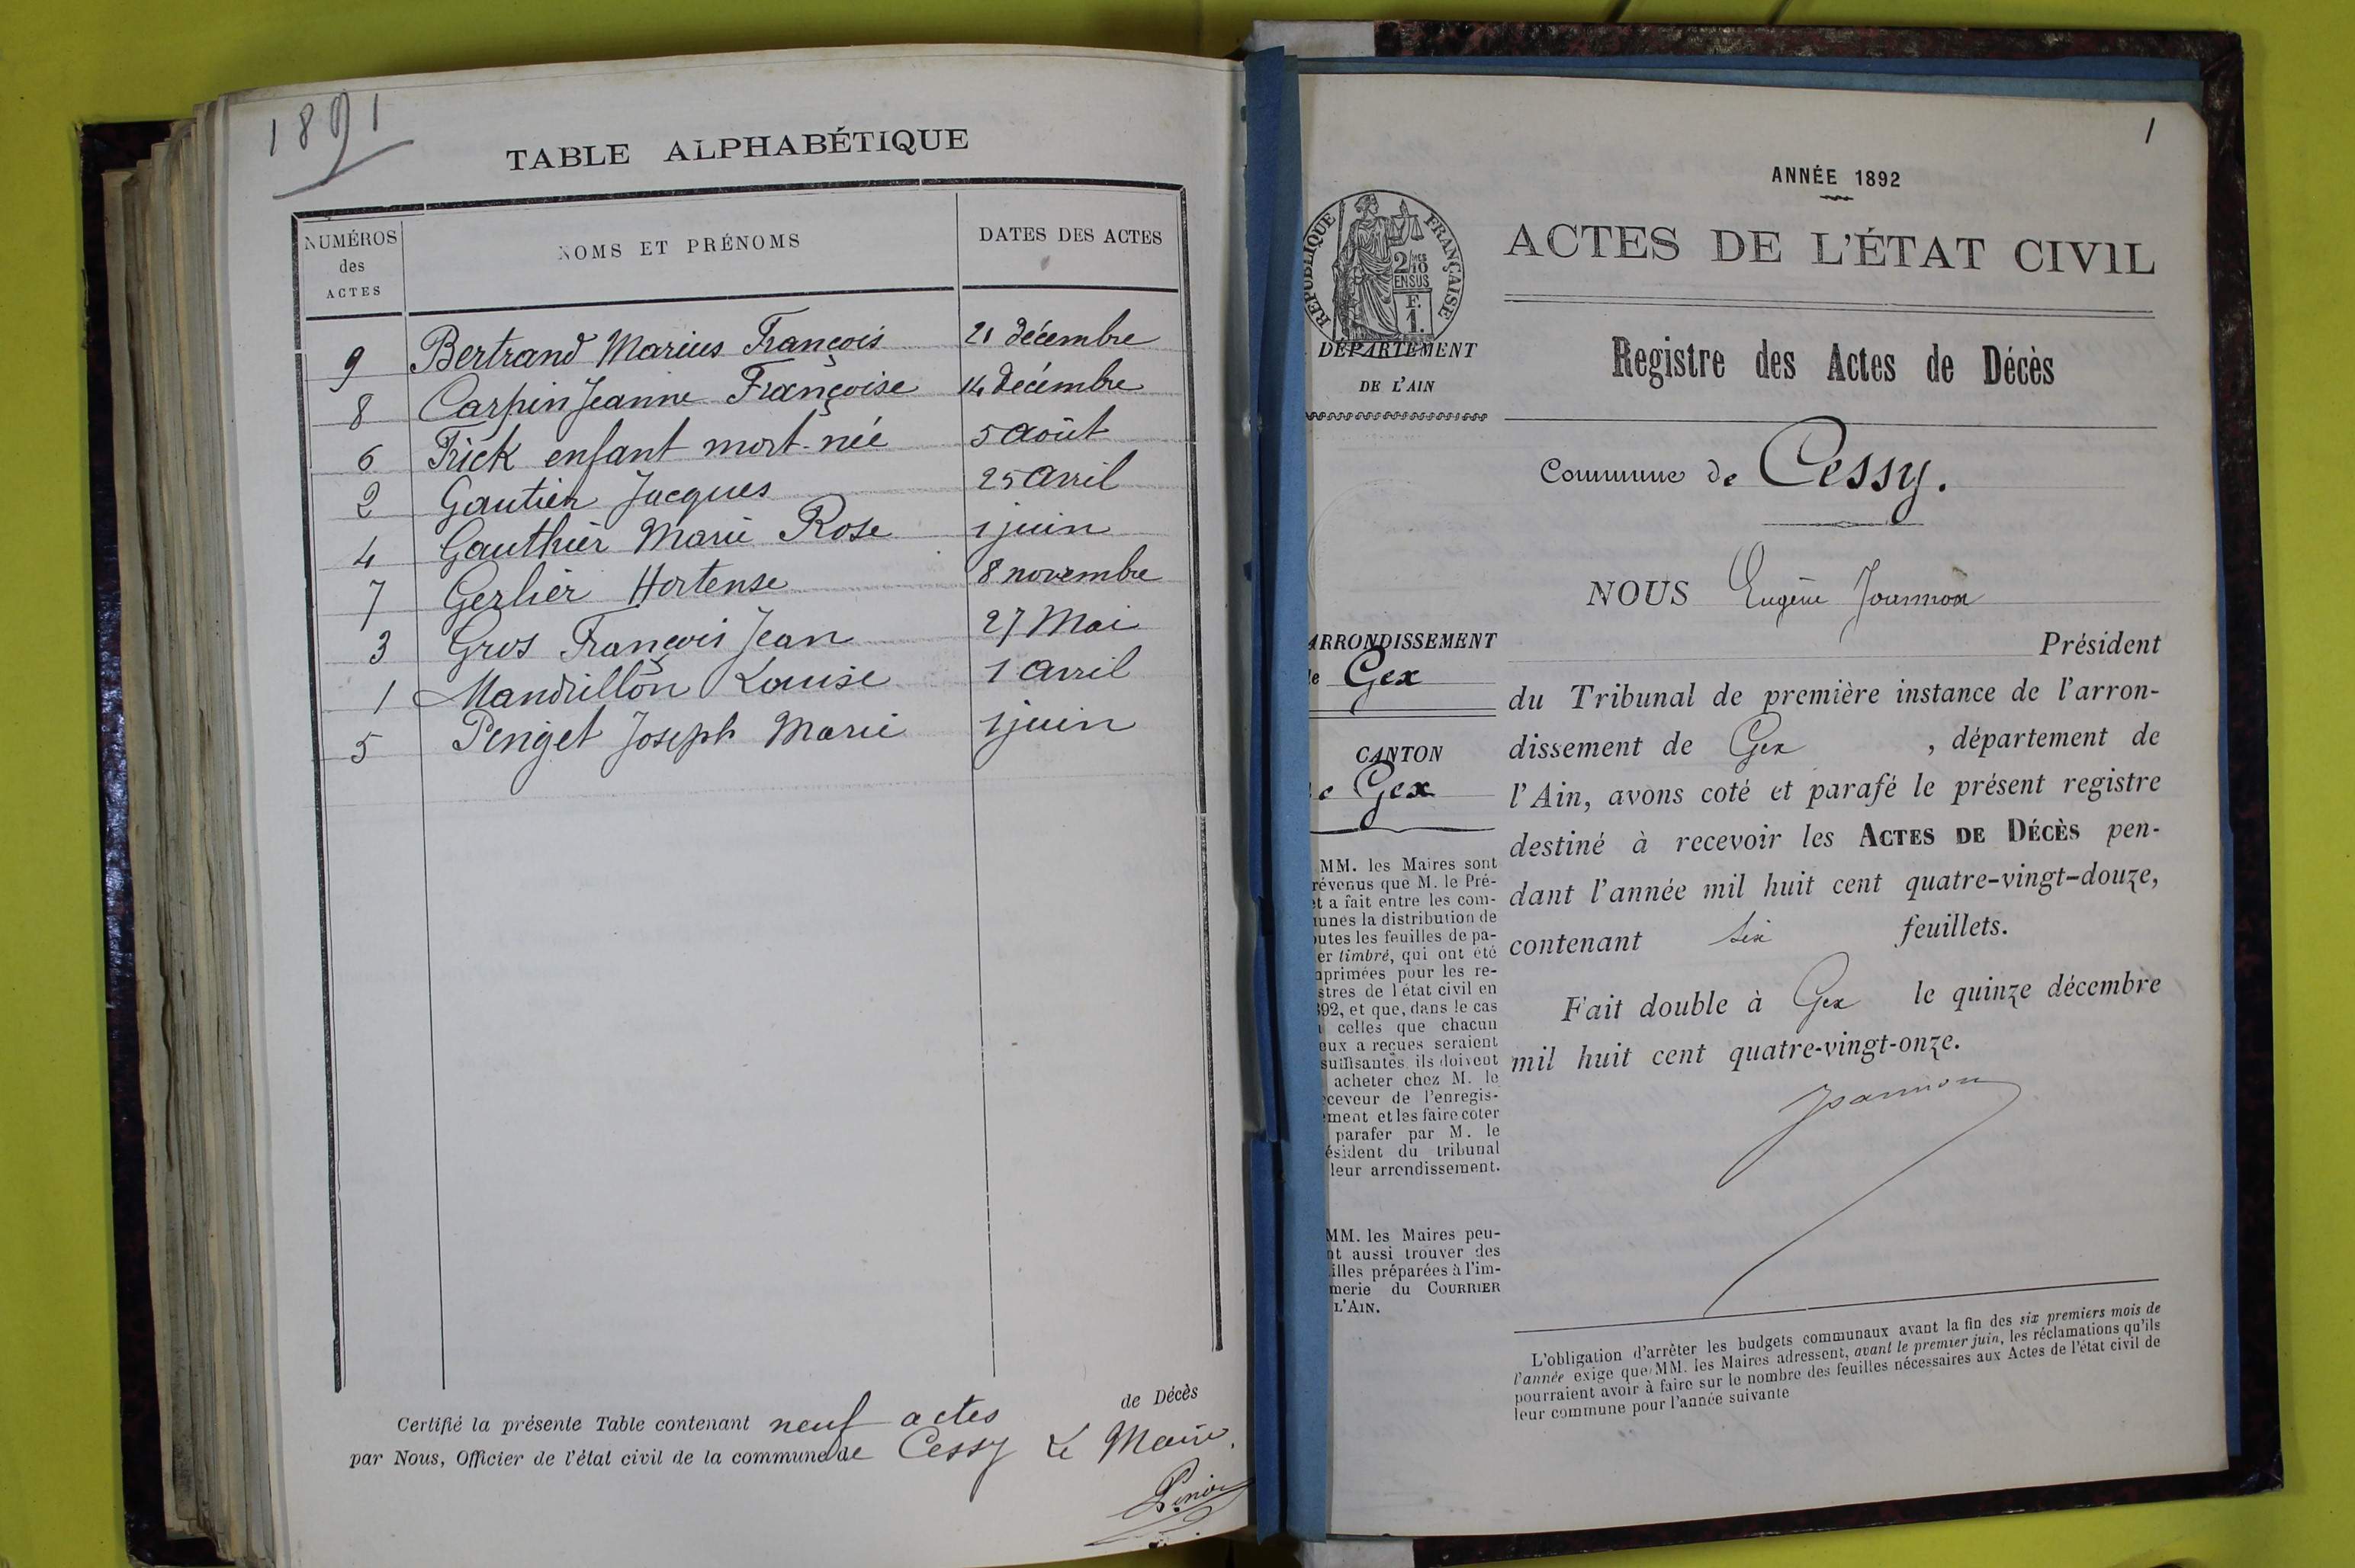 1891
TABLE ALPHABÉTIQUE
NUMÉROS des ACTES NOMS ET PRÉNOMS DATES DES ACTES
9 Bertrand Marius François 21 décembre
8 Carpin Jeanne Françoise 14 décembre
6 Frick enfant mort-née 5 Août
2 Gautier Jacques 25 Avril
4 Gauthier Marie Rose 1 juin
7 Gerlier Hortense 8 novembre
3 Gros François Jean 27 Mai
1 Mandrillon Louise 1 Avril
5 Penget Joseph Marie 1 juin
Certifié la présente Table contenant neuf actes de Décès
par Nous, Officier de l'état civil de la commune de Cessy Le Maire.
1
ANNÉE 1892
ACTES DE L'ÉTAT CIVIL
RÉPUBLIQUE FRANÇAISE
2/10 EN SUS
F. 1.
DÉPARTEMENT
DE L'AIN
Registre des Actes de Décès
Commune de Cessy.
NOUS Eugène Joannon
Président
du Tribunal de première instance de l'arron-
dissement de Gex , département de
l'Ain, avons coté et parafé le présent registre
destiné à recevoir les ACTES DE DÉCÈS pen-
dant l'année mil huit cent quatre-vingt-douze,
contenant six feuillets.
Fait double à Gex le quinze décembre
mil huit cent quatre-vingt-onze.
Joannon
ARRONDISSEMENT
de Gex
CANTON
de Gex
MM. les Maires sont
révenus que M. le Pré-
et a fait entre les com-
unes la distribution de
outes les feuilles de pa-
er timbré, qui ont été
mprimées pour les re-
stres de l'état civil en
892, et que, dans le cas
celles que chacun
eux a reçues seraient
suffisantes, ils doivent
acheter chez M. le
eceveur de l'enregis-
ement et les faire coter
parafer par M. le
ésident du tribunal
leur arrondissement.
MM. les Maires peu-
nt aussi trouver des
illes préparées à l'im-
merie du COURRIER
L'AIN.
L'obligation d'arrêter les budgets communaux avant la fin des six premiers mois de
l'année exige que MM. les Maires adressent, avant le premier juin, les réclamations qu'ils
pourraient avoir à faire sur le nombre des feuilles nécessaires aux Actes de l'état civil de
leur commune pour l'année suivante